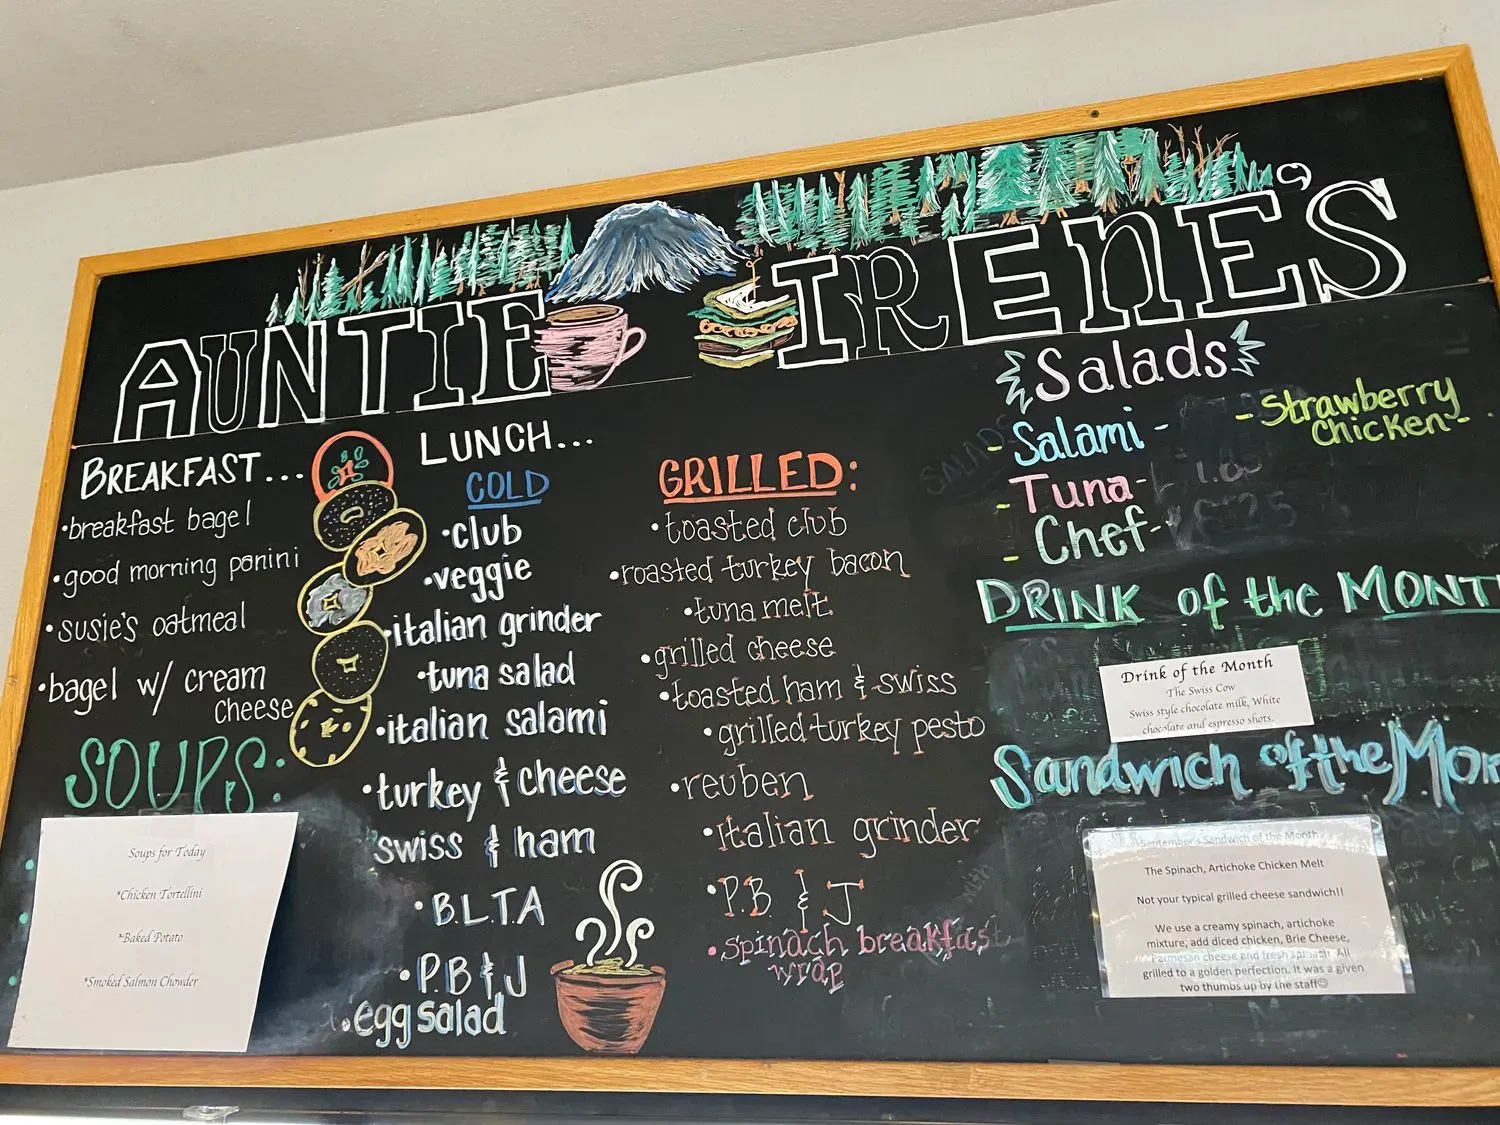 AUNTIE IRENE'S
BREAKFAST...
•breakfast bagel
•good morning panini
•susie's oatmeal
•bagel w/ cream
cheese
SOUPS:
Soups for Today
*Chicken Tortellini
*Baked Potato
*Smoked Salmon Chowder
LUNCH...
COLD
•club
•veggie
•italian grinder
•tuna salad
•italian salami
•turkey & cheese
swiss & ham
•B.L.T.A
•P.B & J
•egg salad
GRILLED:
•toasted club
•roasted turkey bacon
•tuna melt
•grilled cheese
•toasted ham & swiss
•grilled turkey pesto
•reuben
•italian grinder
•P.B & J
•spinach breakfast
wrap
Salads
- Salami -
- Tuna-
- Chef-
- Strawberry
Chicken-
DRINK of the MONT
Drink of the Month
The Swiss Cow
Swiss style chocolate milk, White
chocolate and espresso shots.
Sandwich of the Mon
September's Sandwich of the Month
The Spinach, Artichoke Chicken Melt
Not your typical grilled cheese sandwich!!
We use a creamy spinach, artichoke
mixture, add diced chicken, Brie Cheese,
Parmesan cheese and fresh spinach. All
grilled to a golden perfection. It was a given
two thumbs up by the staff☺